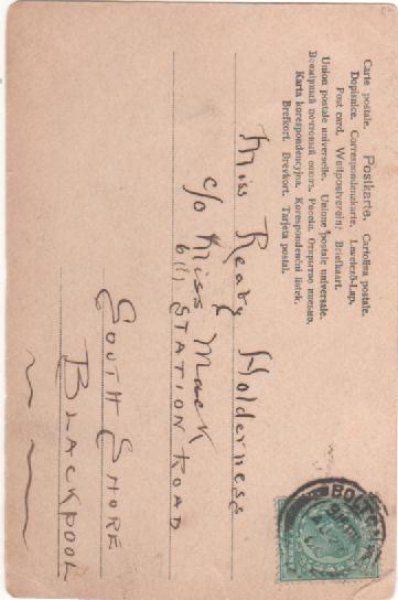 Carte postale. Postkarte. Cartolina postale.
Dopisnice. Correspondenzkarte. Levelező-Lap.
Post card. Weltpostverein: Briefkaart.
Union postale universelle. Unione postale universale.
Всемірный почтовый союзъ. Россія. Открытое письмо.
Karta korespondencyjna. Korespondenční lístek.
Brefkort. Brevkort. Tarjeta postal.
BOLTON
Miss Holderness
c/o Miss Mack
STATION ROAD
SOUTH SHORE
BLACKPOOL